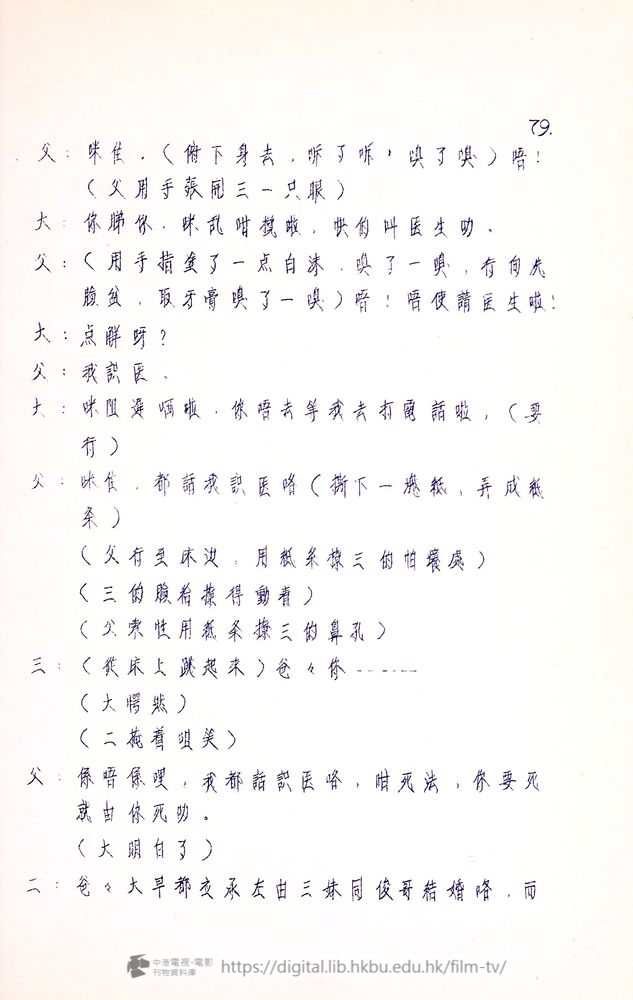 79.
父：咪住．（俯下身去，听了听，嗅了嗅）唔！
（父用手張開三一只眼）
大：你睇你．咪乱咁攪啦，快的叫医生叻。
父：（用手指 了一点白沫，嗅了一嗅，行向洗
臉盆，取牙膏嗅了一嗅）唔！唔使請医生啦！
大：点解呀？
父：我識医．
大：咪阻 啦．你唔去等我去打電話啦．（要
行）
父：咪住．都話我識医咯（撕下一 紙、弄成紙
条）
（父行至床边．用紙条撩三的怕癢處）
（三的臉給撩得動着）
（父索性用紙条撩三的鼻孔）
三：（從床上跳起来）爸々你-------
（大愕然）
（二掩着咀笑）
父：係唔係哩，我都話識医咯，咁死法，你要死
就由你死叻。
（大明白了）
二：爸々大早都 承左由三妹同俊哥結婚咯，而
中港電視·電影
刊物資料庫
https://digital.lib.hkbu.edu.hk/film-tv/